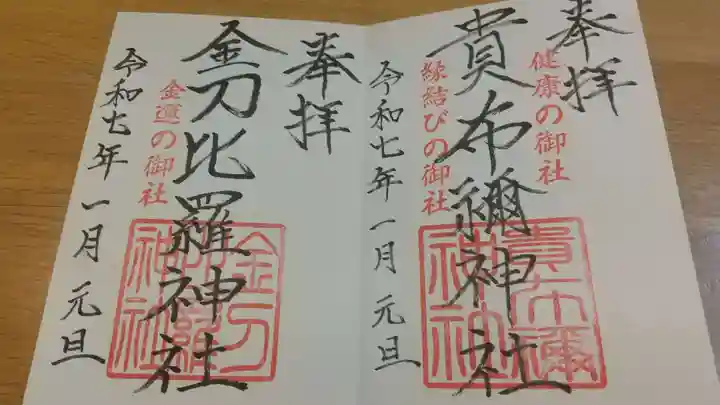 奉拝
健康の御社
貴布禰神社
縁結びの御社
貴布禰神社
令和七年一月元旦
奉拝
金刀比羅神社
金運の御社
金刀比羅神社
令和七年一月元旦